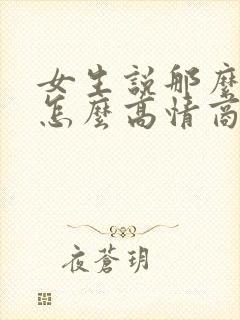 女生說那麼
怎麼高情商
夜蒼玥